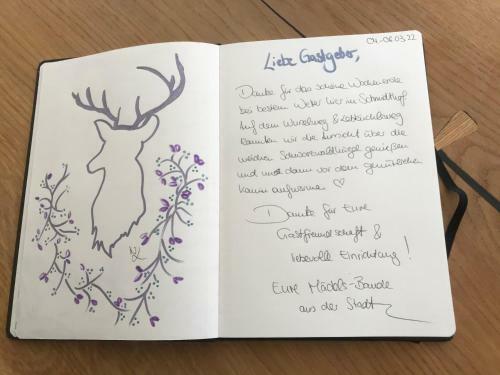 04.-06.03.22
Liebe Gastgeber,
Danke für das schöne Wochenende
bei bestem Wetter hier im
Auf dem Wurzelweg &
konnten wir die Aussicht über die
weichen Schwarzwaldhügel genießen
und uns dann vor dem gemütlichen
Kamin aufwärmen ♡
Danke für Eure
Gastfreundschaft &
liebevolle Einrichtung!
Eure Mädels-Bande
aus der Stadt